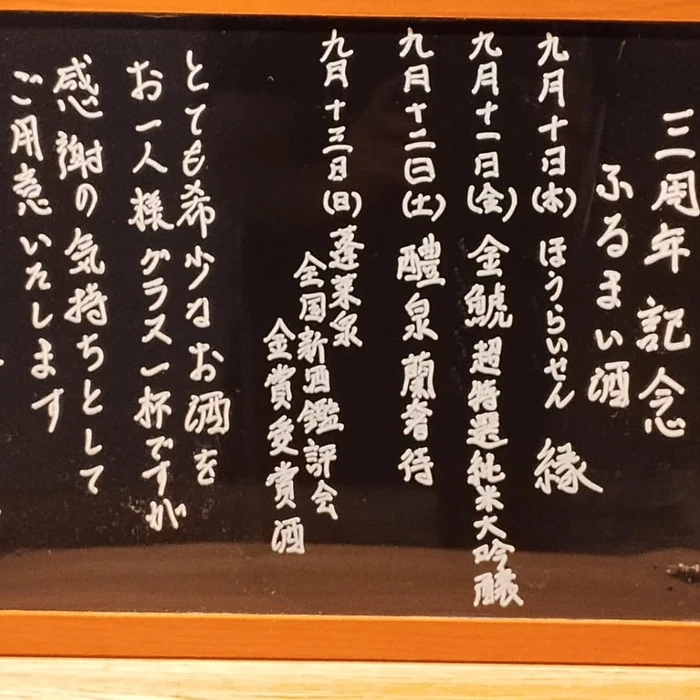 三周年記念
ふるまい酒
九月十日(木) ほうらいせん 縁
九月十一日(金) 金鯱 超特選純米大吟醸
九月十二日(土) 醴泉 蘭奢待
九月十三日(日) 蓬莱泉
全国新酒鑑評会
金賞受賞酒
とても希少なお酒を
お一人様グラス一杯ですが
感謝の気持ちとして
ご用意いたします